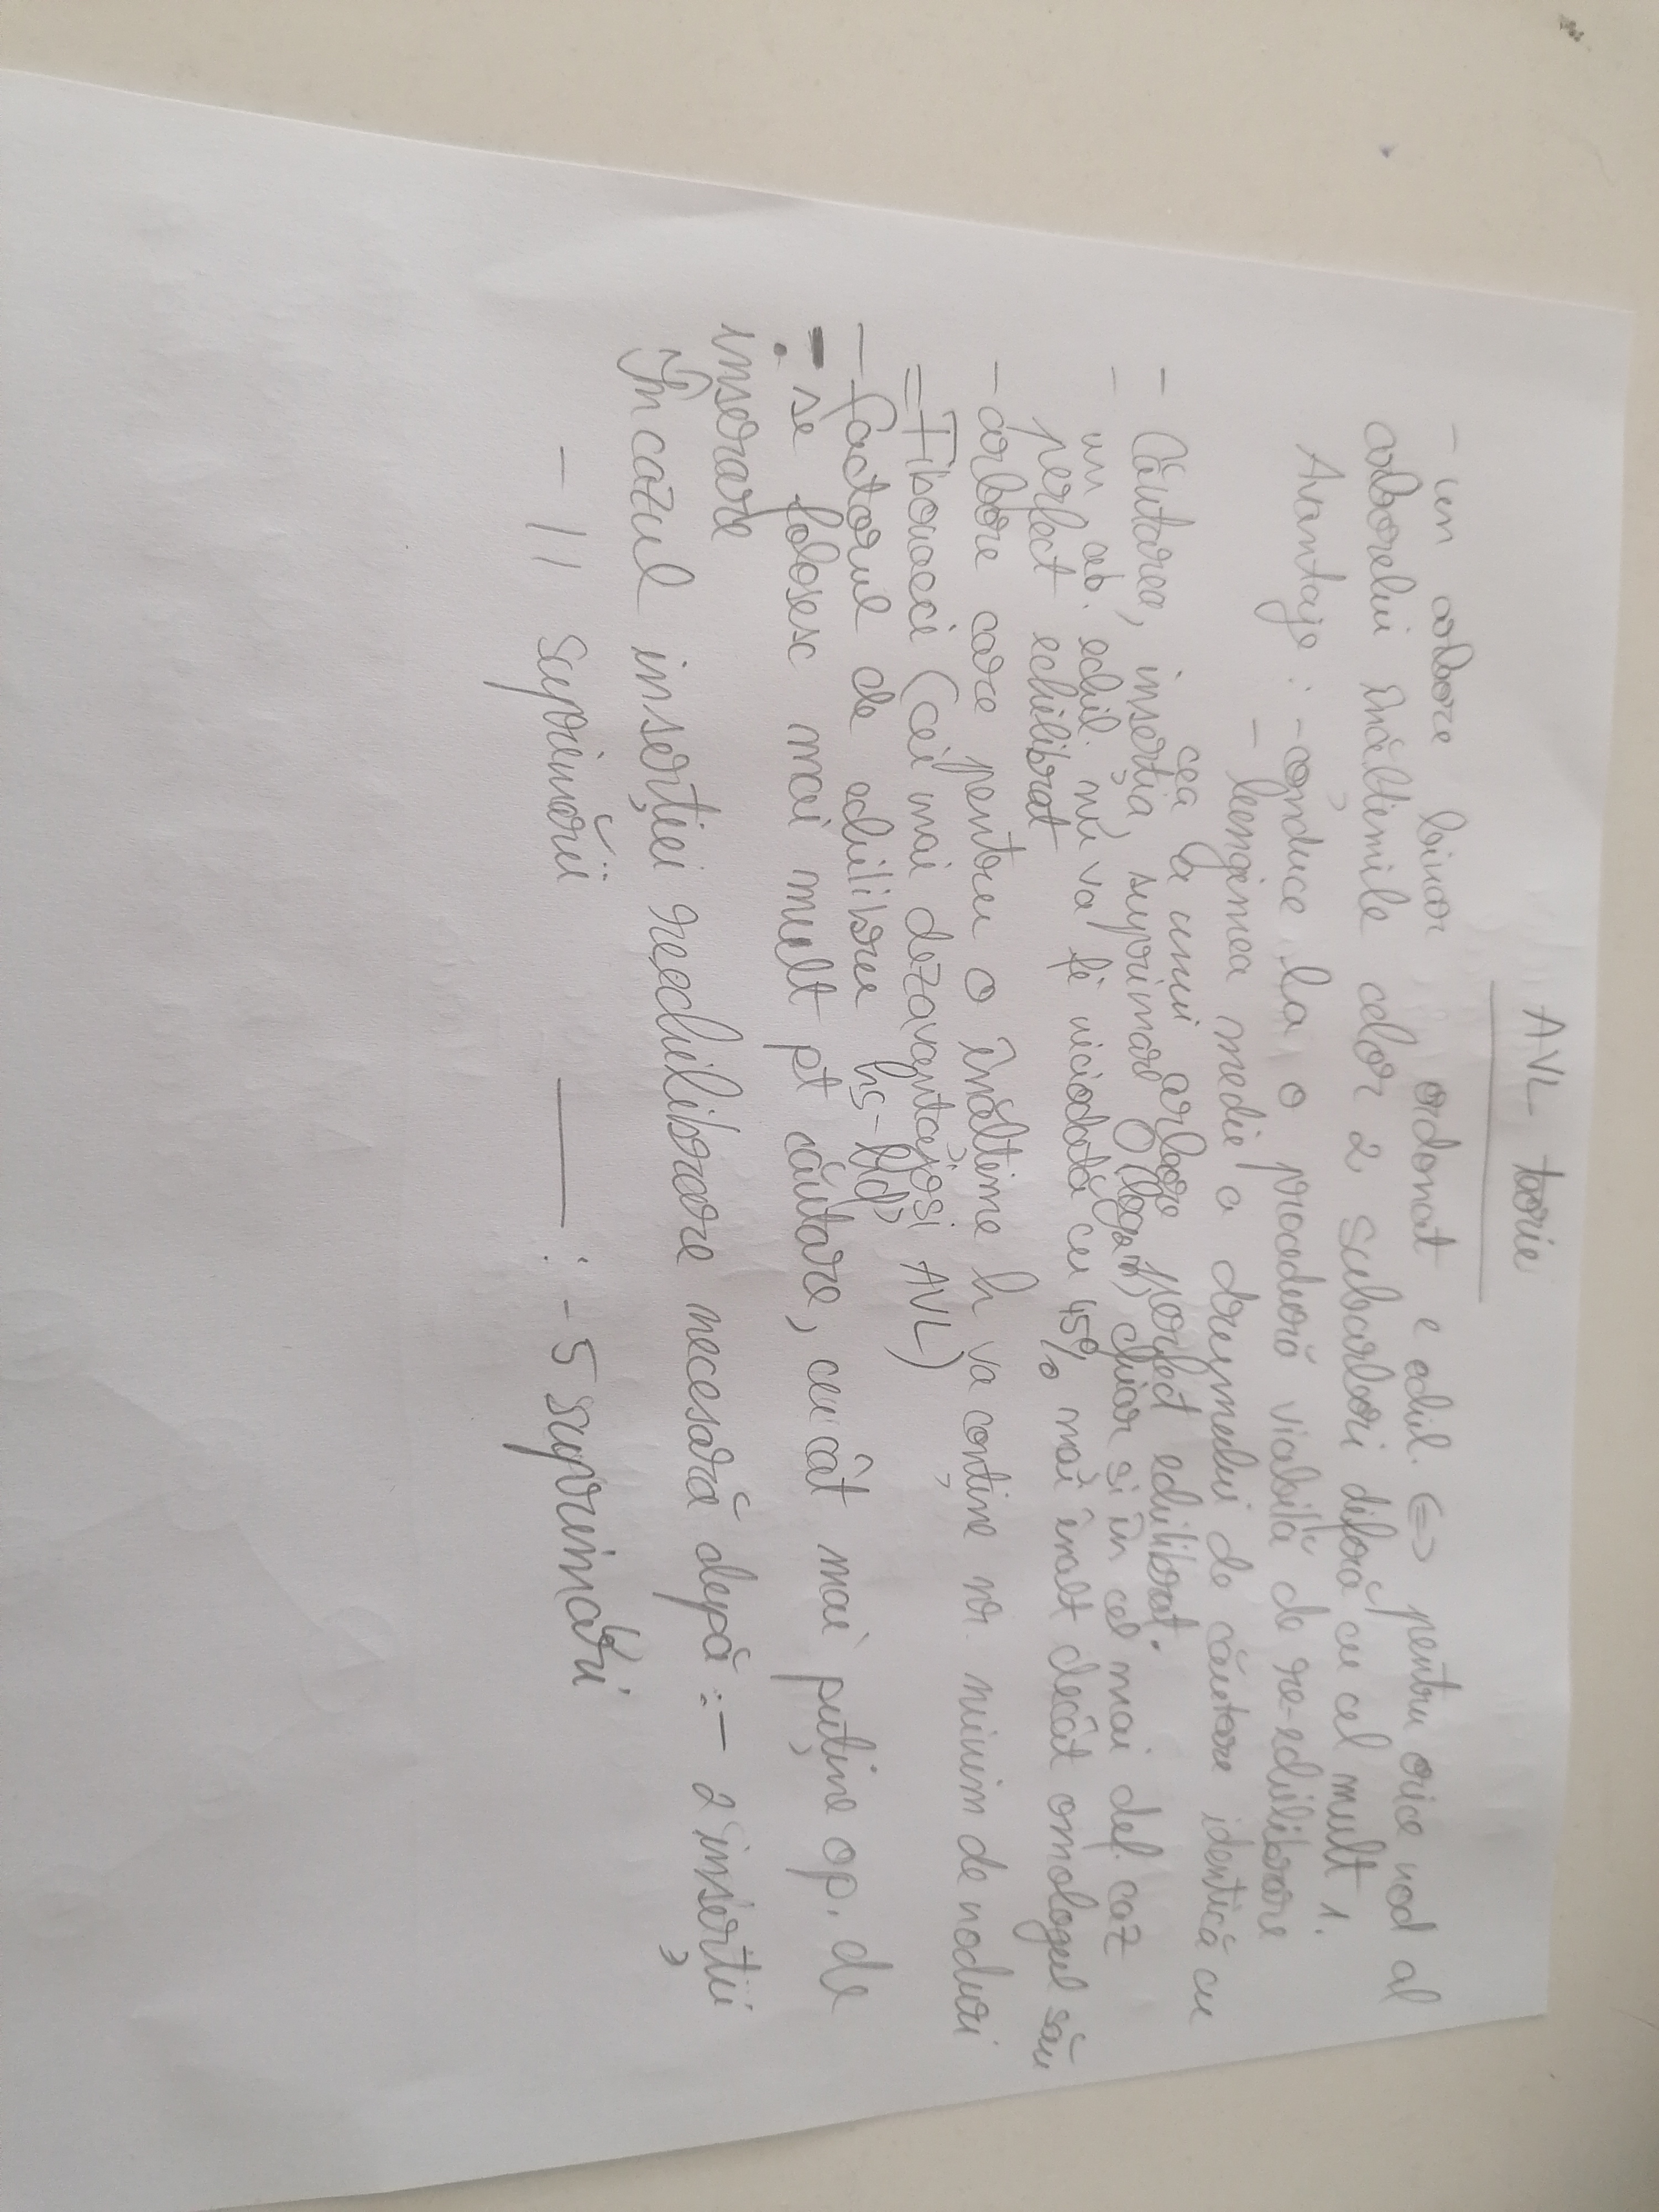 AVL - teorie
- un arbore binar ordonat e echil. <=> pentru orice nod al
arborelui înălțimile celor 2 subarbori diferă cu cel mult 1.
Avantaje : - conduce la o procedură viabilă de re-echilibrare
- lungimea medie a drumului de căutare identică cu
cea la unui arbore perfect echilibrat.
- Căutarea, inserția, suprimare O(log₂n) chiar și în cel mai def. caz
- un arb. echil. nu va fi niciodată cu 45% mai înalt decât omologul său
perfect echilibrat
- arbore care pentru o înălțime h va conține nr. minim de noduri
= Fibonacci (cei mai dezavantajoși AVL)
- factorul de echilibru hs-hd
- se folosesc mai mult pt căutare, cu cât mai puține op. de
inserare
În cazul inserției reechilibrare necesară după : - 2 inserții
- 11 suprimării ——— : - 5 suprimări